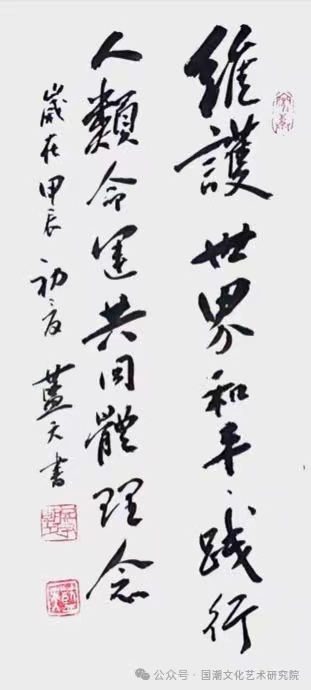 維護世界和平、踐行
人類命運共同體理念
歲在甲辰初夏藍天書
公众号·国潮文化艺术研究院